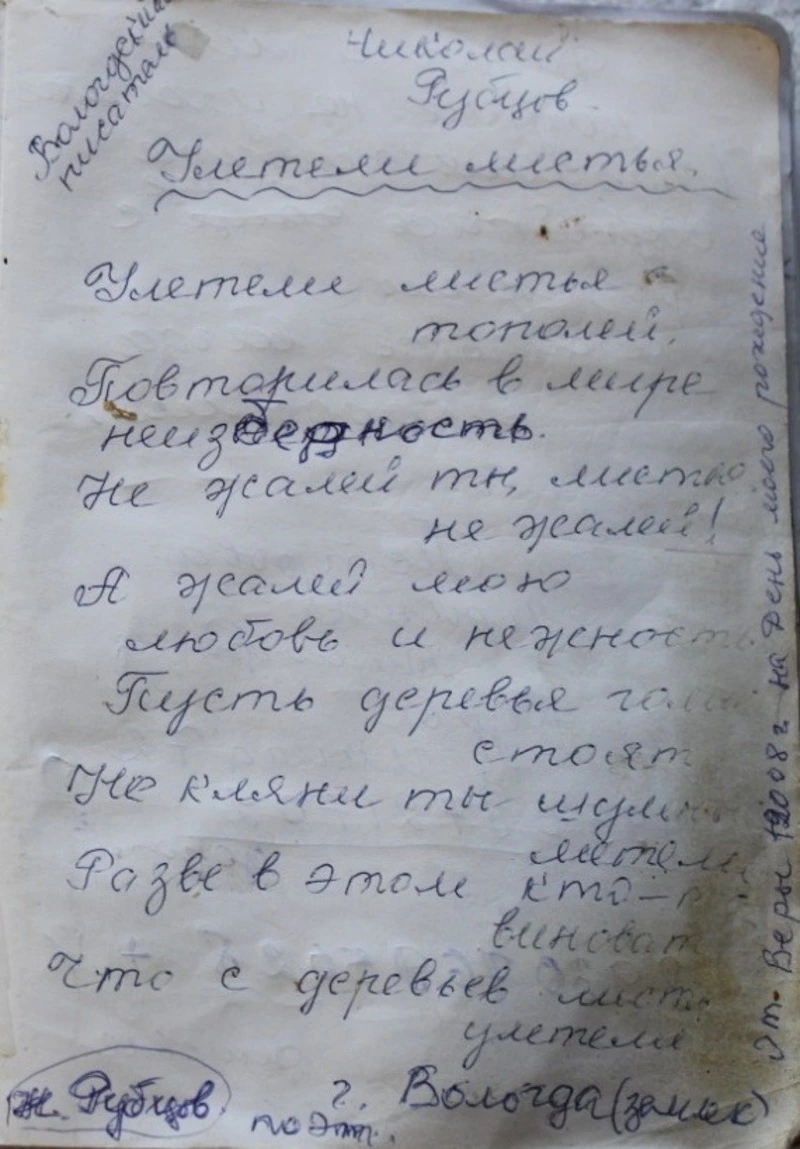 Вологдский
писатель
Николай
Рубцов.
Улетели листья.
Улетели листья с
тополей.
Повторилась в мире
неизбежность.
Не жалей ты, листья
не жалей!
А жалей мою
любовь и нежность
Пусть деревья голые
стоят
Не кляни ты шумные
метели
Разве в этом кто-то
виноват
Что с деревьев листья
улетели
Н. Рубцов.
поэт.
г. Вологда (земляк)
От Веры 12008 г. на День моего рождение